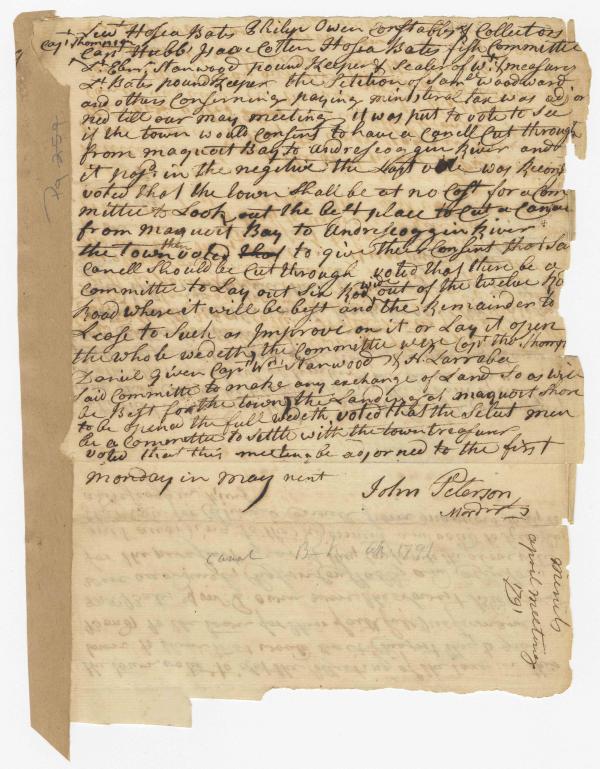 Lewt Hosea Bats Philip Owen Constables & Collectors
Capt Thomson
Capt Hubbs Isaac Cotten Hosea Bates fish Committee
Lt Ebenr Stanwood pound Keeper & Sealer of Wt & measures
Lt Bates pound Keeper the Petition of Saml Woodward
and others Conferning paying ministeral tax was adjor
ned till our may meeting it was put to vote to See
if the town would Consent to have a Canell Cut through
from maquoit Bay to Andrescoggin River and
it pasd in the negitive the Last vote was Recons
voted that the town Shall be at no Cost for a Com
mittee to Look out the best place to Cut a Canae
from maquoit Bay to Andrescoggin River
the town then voted that to give their Consent that Sa
Canell Should be Cut through voted that there be a
Committee to Lay out Six Rod wide out of the twelve Ro
Road where it will be best and the Remainder to
Lease to Such as Improve on it or Lay it open
the whole wedeth the Committee were Capt tho Thomp
Daniel Given Capt Wm Stanwood & H. Larrabe
Said Committee to make any exchange of Land So as will
be Best for the town the Landing at maquoit Shore
to be opened the full wedeth voted that the Select men
be a Committee to Settle with the town treasurer
voted that this meeting be adjorned to the first
monday in may next
John Peterson
Modr
Canal
1791
minits
april meeting
1791
Pg 254